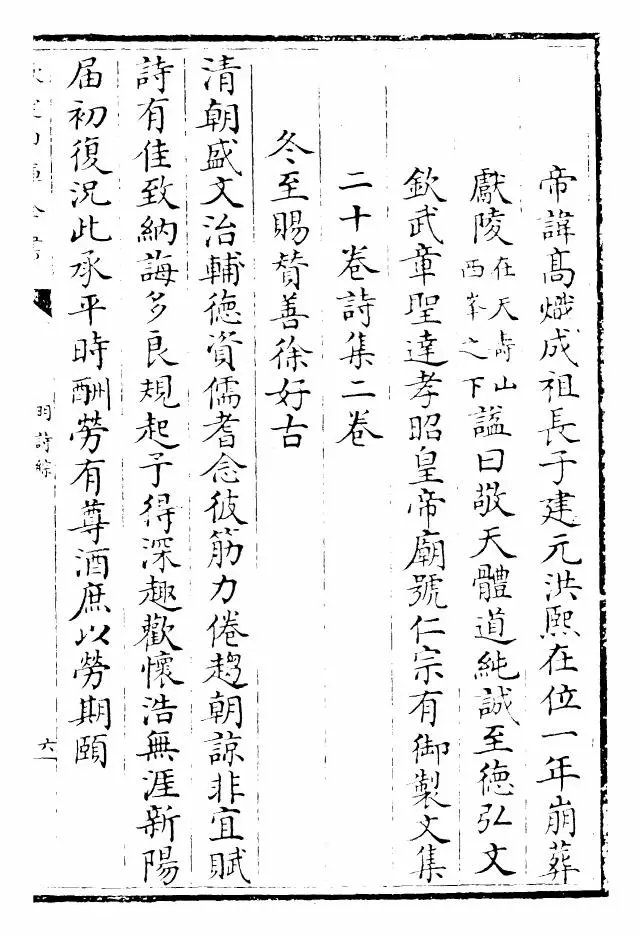 帝諱髙熾成祖長子建元洪熙在位一年崩葬
獻陵在天壽山西峯之下諡曰敬天體道純誠至徳弘文
欽武章聖達孝昭皇帝廟號仁宗有御製文集
二十卷詩集二卷
冬至賜贊善徐好古
清朝盛文治輔徳資儒耆念彼筋力倦趨朝諒非宜賦
詩有佳致納誨多良規起予得深趣歡懷浩無涯新陽
届初復况此承平時酬勞有尊酒庶以勞期頤
明詩綜
六